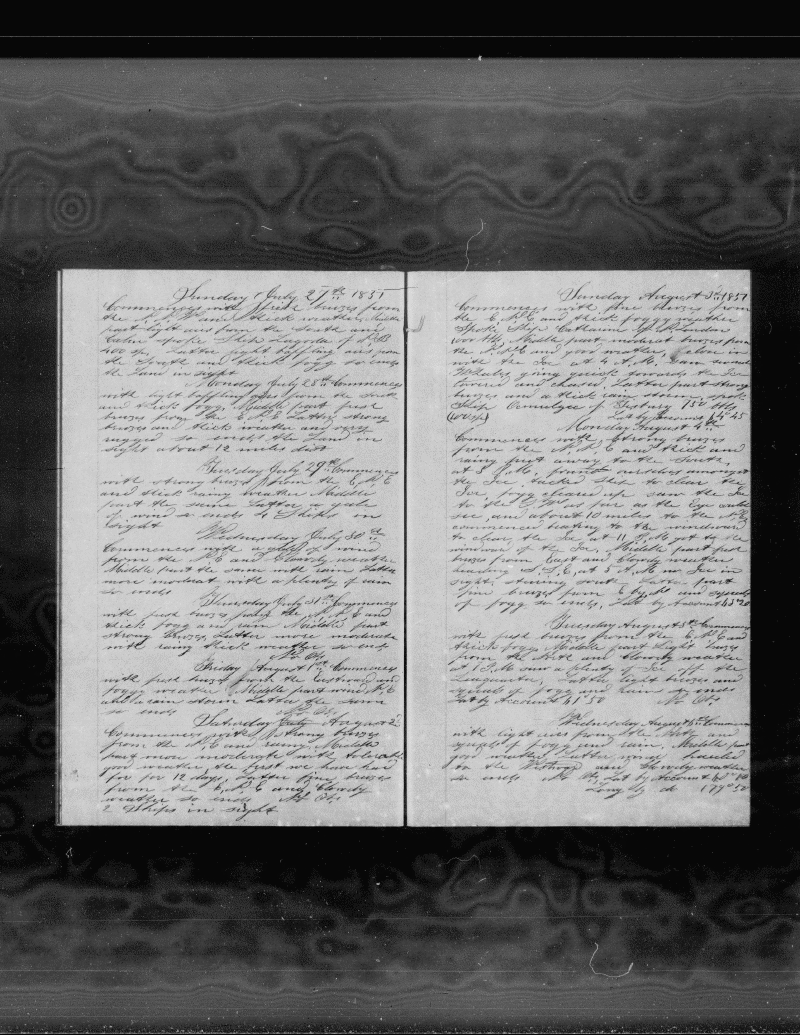 Sunday July 27th 1851
Commences with fresh breezes from
the N.E. and thick weather Middle
part light airs from the South and
Calm spoke Ship Lagoda of N.B.
400 bbls Latter part light baffling airs from
the South and thick fogg so ends
the Land in sight
Monday July 28th Commences
with light baffling airs from the South
and thick fogg, Middle part fresh
breezes from E.N.E. Latter strong
breezes and thick weather and very
rugged so ends the Land in
sight about 12 miles dist
Tuesday July 29th Commences
with strong breezes from the E.N.E
and thick rainy weather Middle
part the same Latter a gale
of wind so ends 2 Ships in
sight
Wednesday July 30th
Commences with a gale of wind
from the N.E and Cloudy weather
Middle part the same with rain Latter
more moderat with a plenty of rain
so ends
Thursday July 31st Commences
with fresh breezes from the N.N.E and
thick fogg and rain Middle part
strong breezes, Latter more moderate
with rainy thick weather so ends
No Obs
Friday August 1st Commences
with fresh breezes from the Eastward and
foggy weather Middle part wind N.E
and a rain storm Latter the same
so ends No Obs
Saturday July August 2
Commences with strong breezes
from the N.E and rainy, Middle
part more moderate with tolerable
good weather the first we have had
for 12 days, Latter fine breezes
from the E.N.E and Cloudy
weather so ends No Obs
2 Ships in sight
Sunday August 3d 1851
Commences with fine breezes from
the E.N.E and thick foggy weather
Spoke Ship Catharine N. London
1000 bbls, Middle part moderat breezes from
the N.E and good weather, close in
with the Ice at 4 A.M. saw
Whales going quick towards the Ice
lowered and chased, Latter part strong
breezes and a thick rain storm, spoke
Ship Ocmulgee of 750 bbls
Lat by Account 45
Monday August 4th
Commences with strong breezes
from the N.N.E and thick and
rainy put away to the South,
at 8 P.M. found ourselves amongst
the Ice, tacked Ship to clear the
Ice, fogg cleared up saw the Ice
to the as far as the Eye could
see, and about 10 miles to the
commenced beating to the windward
to clear the Ice, at 11 P.M got to the
windward of the Ice, Middle part fresh
breezes from East and Cloudy weather
heading S.S.E, at 5 A.M. no Ice in
sight, steering South Latter part
fine breezes from E by N and squalls
of fogg so ends, Lat by Account
Tuesday August 5th Commences
with fresh breezes from the E.N.E and
thick fogg, Middle part light breezes
from the North and Cloudy weather
at 1 P.M saw a plenty of Ice of the
Leaquarter, Latter light breezes and
squalls of fogg and rain so ends
Lat by Account No Obs
Wednesday August 6th Commences
with light airs from the North and
squalls of fogg and rain, Middle part
good weather Latter wind hauled
to the Westward and Cloudy weather
so ends No Obs, Lat by Account
Long by do